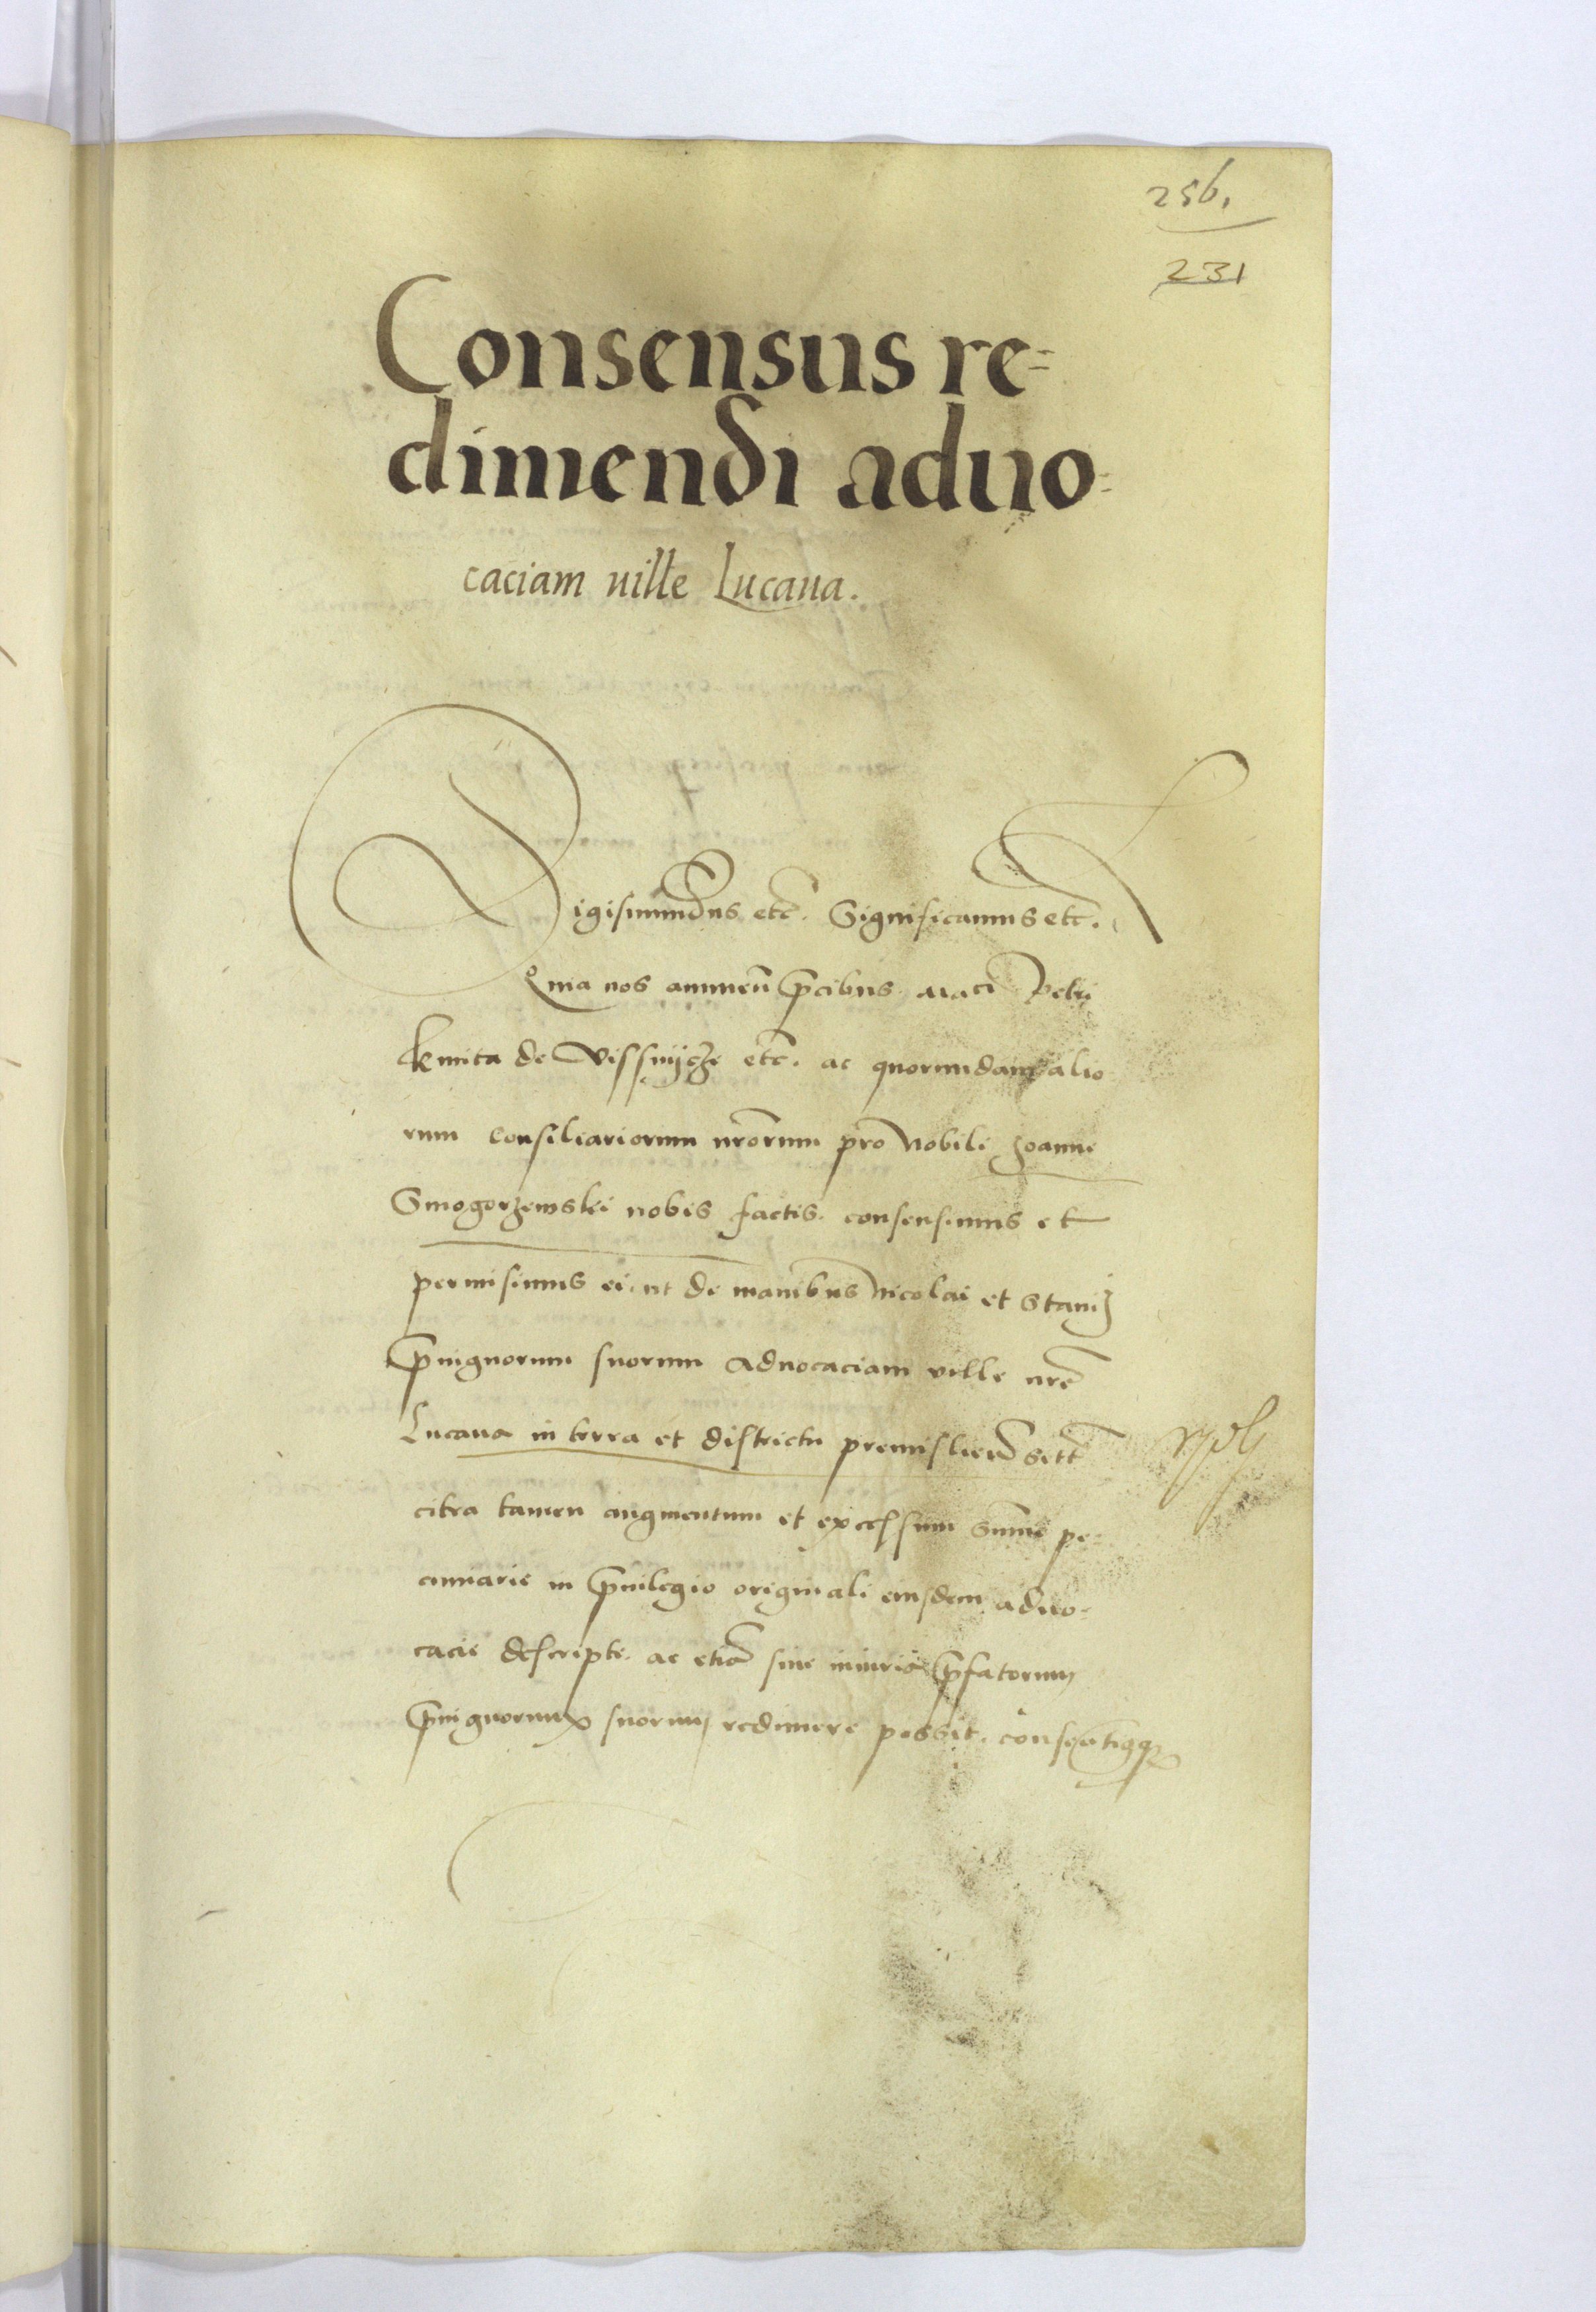 256.
231
Consensus re=
dimendi aduo=
caciam ville Lucaua.
Sigismundus etc. Significamus etc.
Quia nos annuen̄ p̄cibus Petri
kmita de Vissnijcze etc. ac quorundam alio
rum consiliariorum nr̄orum pro Nobili Joanne
Smogorzewski nobis factis. consensimus et
permisimus ei. ut de manibus Nicolai et Stanis
p̄uignorum suorum aduocaciam ville nr̄e
Lucaua in terra et districtu premislien̄ sitt̄
citra tamen augmentum et excessum summe pe=
cuniarie in p̄uilegio originali eiusdem aduo=
cacie descripte. ac etiā sine iniuria p̄fatorum
p̄uignorum suorum redimere possit. consentimusq̄